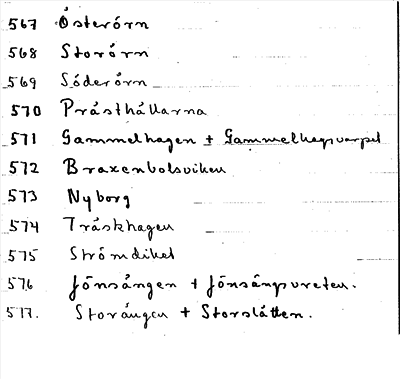 567 Österörn
568 Storörn
569 Söderörn
570 Prästhällarna
571 Gammelhagen + Gammelhagsvarpet
572 Braxenbolsviken
573 Nyborg
574 Träskhagen
575 Strömdiket
576 Jönsängen + Jönsängsvreten.
577. Storängen + Storslåtten.